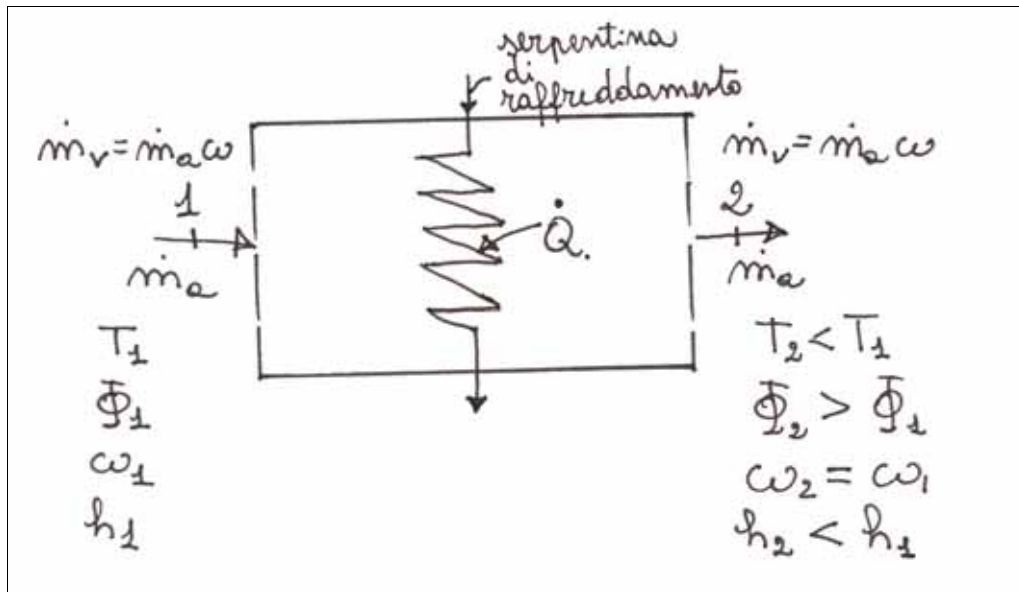 serpentina
di
raffreddamento
ṁᵥ = ṁₐ ω
1
ṁₐ
T₁
Φ₁
ω₁
h₁
Q̇.
ṁᵥ = ṁₐ ω
2
ṁₐ
T₂ < T₁
Φ₂ > Φ₁
ω₂ = ω₁
h₂ < h₁